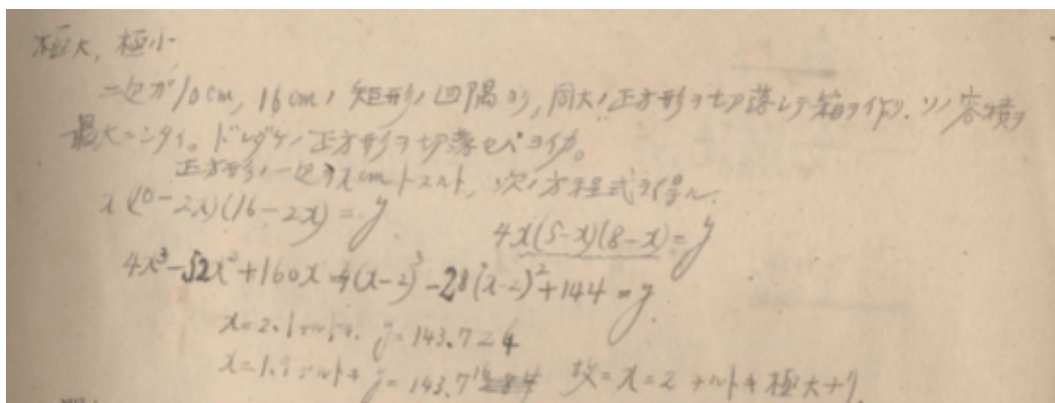 極大, 極小
二辺ガ10cm, 16cmノ矩形ノ四隅カラ, 同大ノ正方形ヲ切落シテ箱ヲ作リ. ソノ容積ヲ
最大ニシタイ。ドレダケノ正方形ヲ切落セバヨイカ。
正方形ノ一辺ヲxcmトスルト, 次ノ方程式ヲ得ル.
x(10-2x)(16-2x)=y
4x(5-x)(8-x)=y
4x³-52x²+160x=4(x-2)³-28(x-2)²+144=y.
x=2.1ナルトキ. y=143.724
x=1.9ナルトキ y=143.716 故ニx=2ナルトキ極大ナリ.